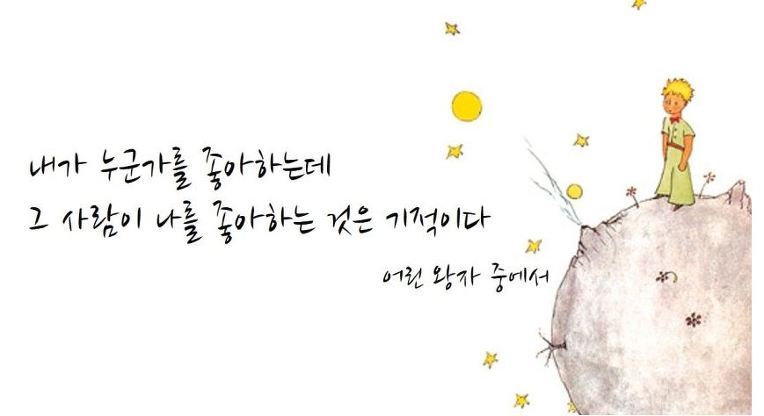 내가 누군가를 좋아하는데
그 사람이 나를 좋아하는 것은 기적이다
어린 왕자 중에서